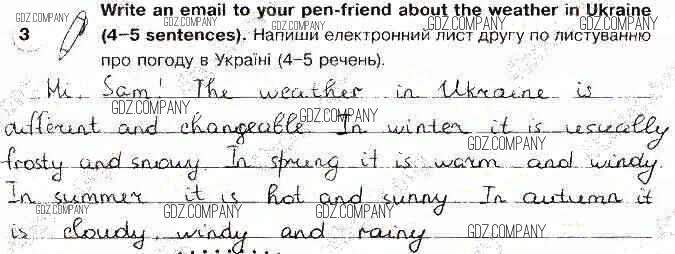 3 Write an email to your pen-friend about the weather in Ukraine
(4–5 sentences). Напиши електронний лист другу по листуванню
про погоду в Україні (4–5 речень).
Hi, Sam! The weather in Ukraine is
different and changeable. In winter it is usually
frosty and snowy. In spring it is warm and windy.
In summer it is hot and sunny. In autumn it
is cloudy, windy and rainy
GDZ.COMPANY